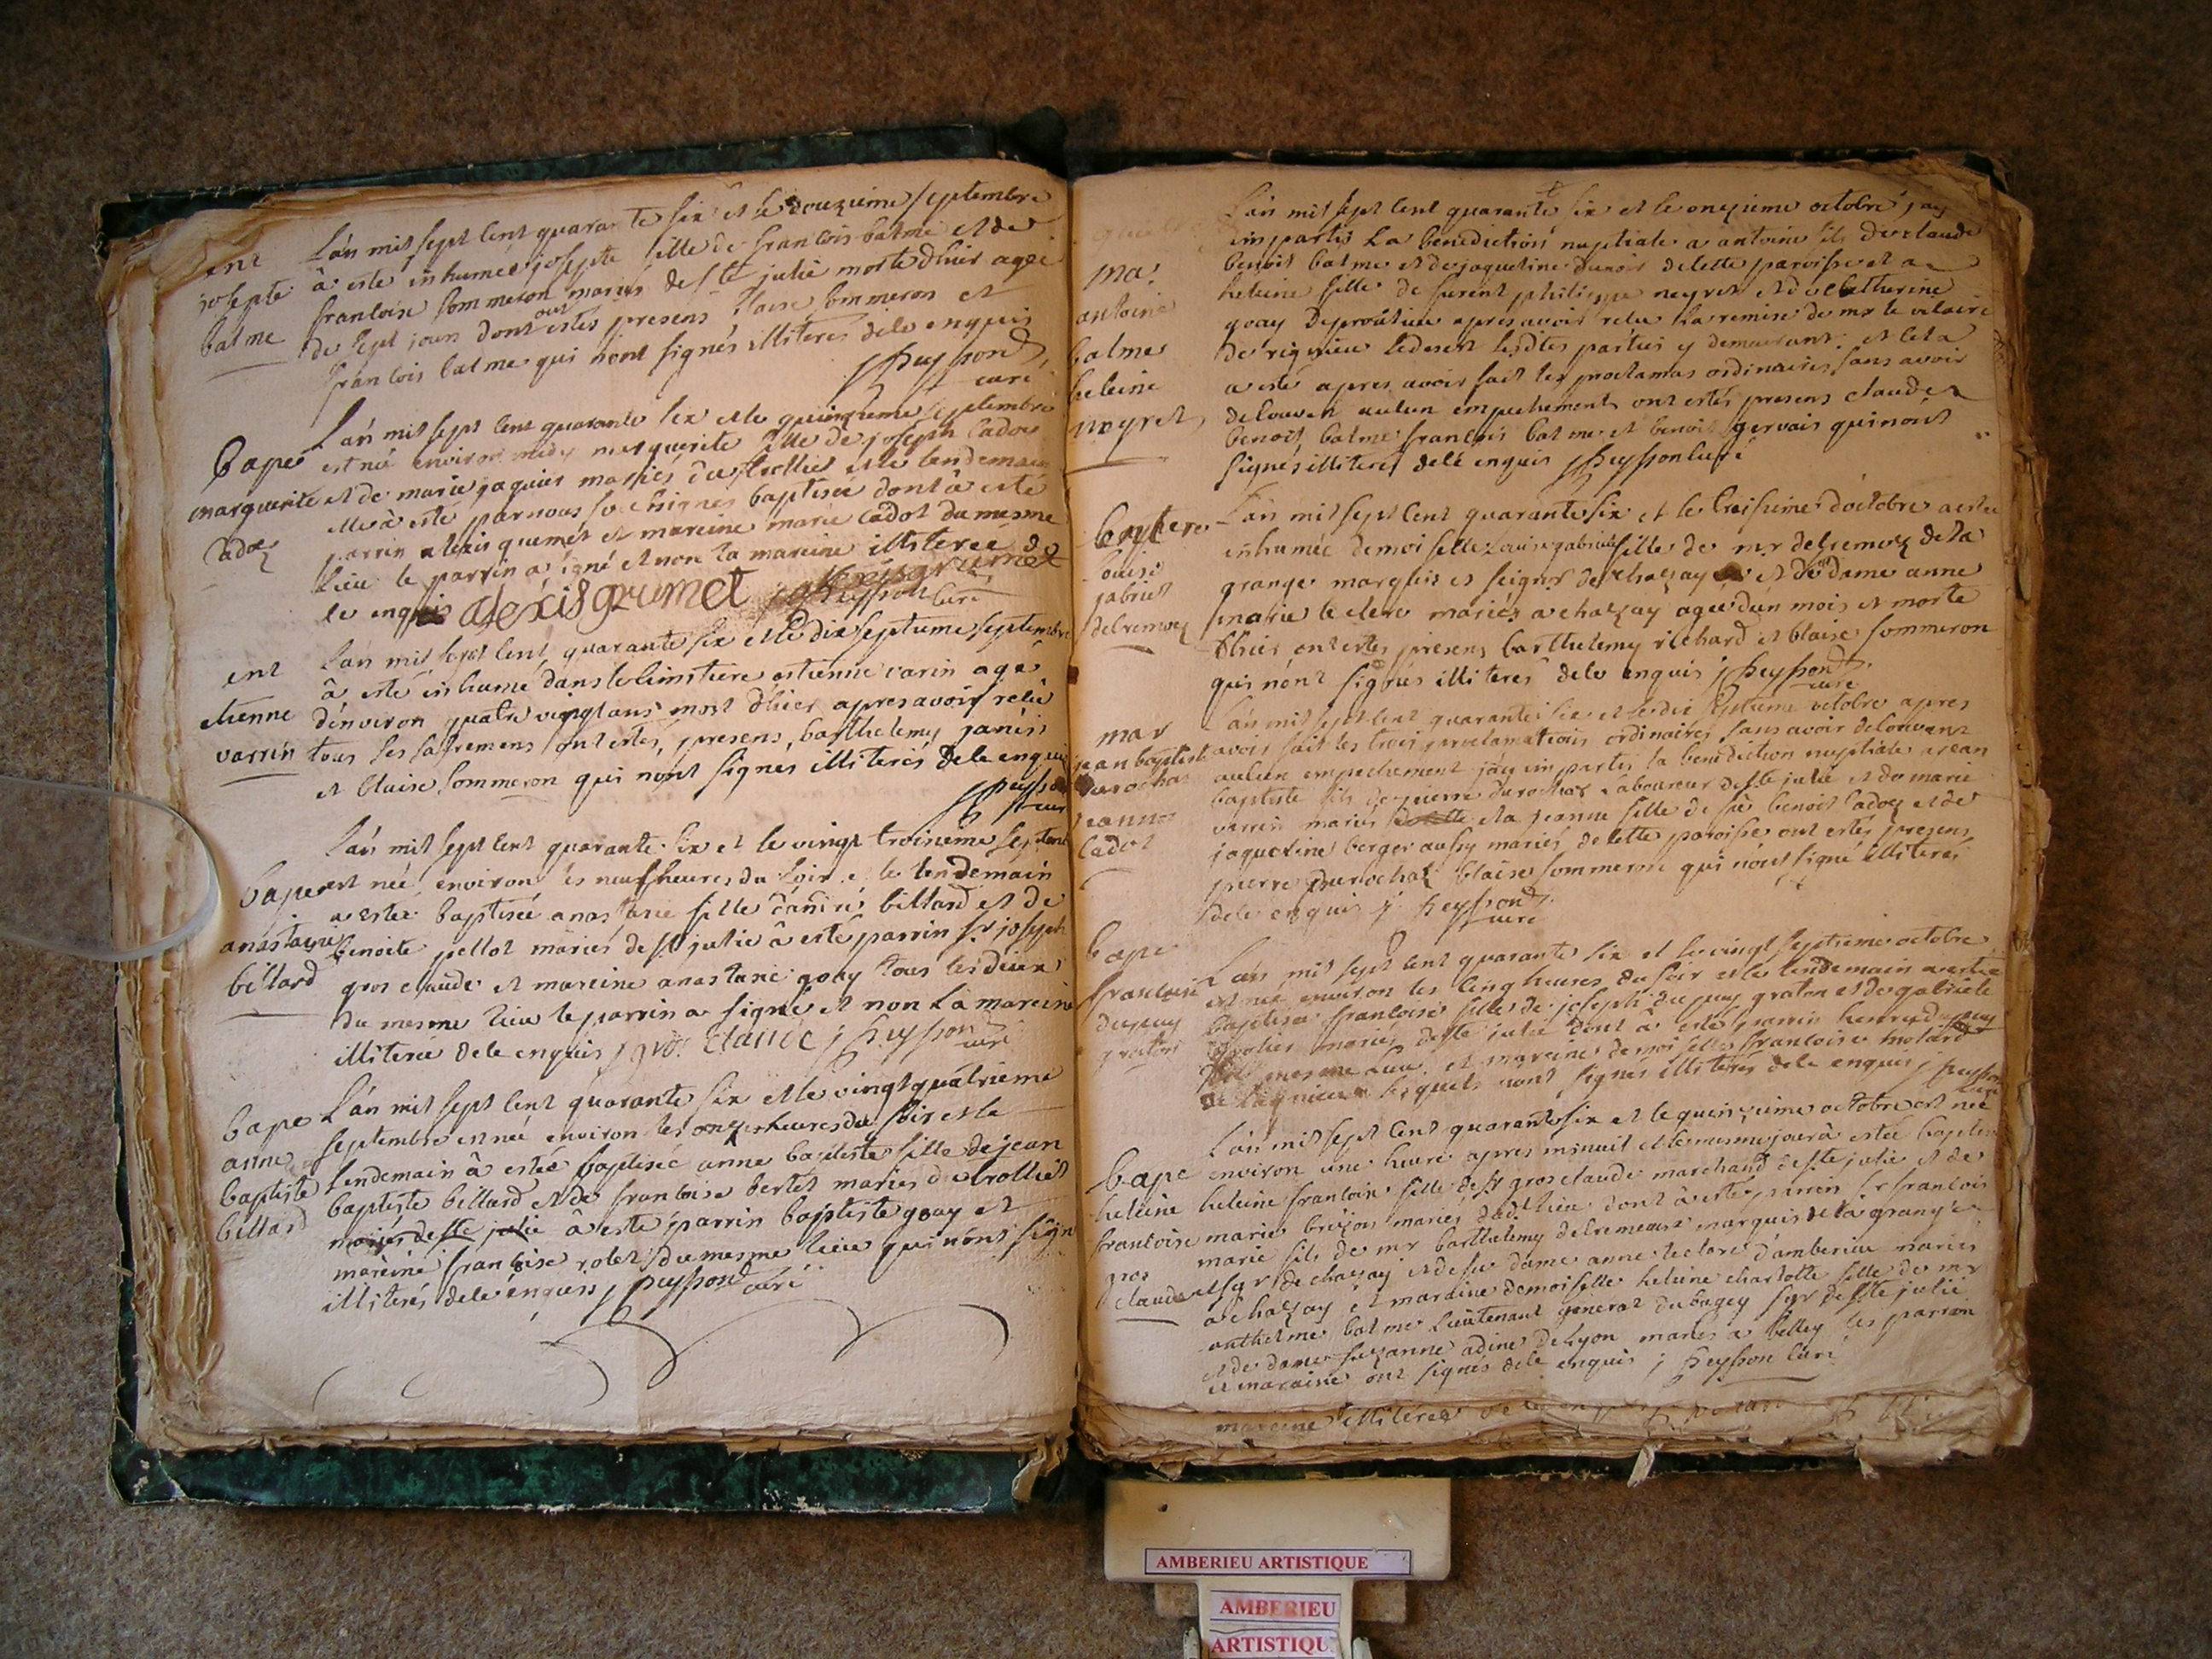 ent
josepte
batme
L'an mil sept cent quarante six et le douzieme septembre
à esté inhumée josepte fille de francois batme et de
francoise sommeron mariés de ste julie morte d'hier agée
de sept jours dont ont estés presens blaise sommeron et
francois batme qui n'ont signés illiterés de le enquis
j peysson
curé
bape
marguerite
cadoz
L'an mil sept cent quarante six et le quinzieme septembre
est née environ midy marguerite fille de joseph cadoz
et de marie jaquier mariés du trollier et le lendemain
elle à esté par nous soussignes baptisée dont à esté
parrin alexis et mareine marie cadot du mesme
lieu le parrin a signé et non la mareine illiterée de
le enquis alexis grumet j peysson curé
ent
etienne
varrin
L'an mil sept cent quarante six et le dix septieme septembre
à esté inhumé dans le cimitiere estienne varin agé
d'environ quatre vingt ans mort d'hier apres avoir reçu
tous ses sacremens ont estés presens barthelemy janin
et blaise sommeron qui n'ont signes illiterés de le enquis
j peysson
curé
bape
anastasie
billard
L'an mil sept cent quarante six et le vingt troisieme septembre
est née environ les neuf heures du soir et le lendemain
a estée baptisée anastasie fille d'andré billard et de
benoite pellot mariés de ste julie à esté parrin sr joseph
gros claude et mareine anastasie goay tous les deux
du mesme lieu le parrin a signé et non la mareine
illiterée de le enquis j gros claude j peysson
curé
bape
anne
baptiste
billard
L'an mil sept cent quarante six et le vingt quatrieme
septembre est née environ les onze heures du soir et le
lendemain à estée baptisée anne baptiste fille de jean
baptiste billard et de francoise bertet mariés de trollier
mariés de ste julie à esté parrin baptiste goay et
mareine francoise rolet du mesme lieu qui n'ont signé
illiterés de le enquis j peysson curé
mar
antoine
batme
heleine
neyret
L'an mil sept cent quarante six et le onzieme octobre j'ay
imparti la benediction nuptiale a antoine fils de claude
benoit batme et de jaqueline dunoir de cette paroisse et a
heleine fille de furent philippe neyret et de catherine
goay de proulieu apres avoir reçu la remise de mr le vicaire
de rignieu le desert lesdtes parties y demeurant et cela
a esté apres avoir fait les proclamas ordinaires sans avoir
decouvert aucun empechement ont estés presens claude
benoit batme francois batme et benoit gervais qui n'ont
signés illiterés de le enquis j peysson curé
louise
gabriele
delremoz
L'an mil sept cent quarante six et le treisieme d'octobre a esté
inhumée demoiselle louise gabriele fille de mr delremoz de la
grange marquis et seigr de chazay et de dame anne
marie le clerc mariés a chazay agée d'un mois et morte
d'hier ont estes presens barthelemy richard et blaise sommeron
qui n'ont signés illiterés de le enquis j peysson
curé
mar
jean baptiste
durochat
jeanne
cadoz
L'an mil sept cent quarante six et le dix septieme octobre apres
avoir fait les trois proclamations ordinaires sans avoir decouvert
aucun empechement j'ay imparti la benediction nuptiale a jean
baptiste fils de pierre durochat laboureur de ste julie et de marie
verrin mariés et a jeanne fille de feu benoit cadoz et de
jaqueline berger aussy mariés de cette paroisse ont estés presens
pierre durochat blaise sommeron qui n'ont signé illiterés
de le enquis j peysson
curé
bape
francoise
dupuy
graton
L'an mil sept cent quarante six et le vingt septieme octobre
est née environ les cinq heures du soir et le lendemain a estée
baptisée francoise fille de joseph dupuy graton et de gabriele
mariés de ste julie dont à esté parrin henry dupuy
du mesme lieu et mareine demoiselle francoise motard
de lagnieu lesquels n'ont signés illiterés de le enquis j peysson
curé
bape
heleine
francoise
gros
claude
L'an mil sept cent quarante six et le quinzieme octobre est née
environ une heure apres minuit et le mesme jour à estée baptisée
heleine francoise fille de sr gros claude marchand de ste julie et de
marie brizon mariés dudt lieu dont à esté parrin sr francois
marie fils de mr barthelemy delremeaux marquis de la grange
et sgr de chazay et de feu dame anne leclerc d'amberieu mariés
a chazay et mareine demoiselle heleine charlotte fille de mr
anthelme batme lieutenant general du bugey sgr de ste julie
et de dame suzanne adine de lyon mariés a belley les parrin
et maraine ont signés de le enquis j peysson curé
mareine illiterée
AMBERIEU ARTISTIQUE
AMBERIEU
ARTISTIQU